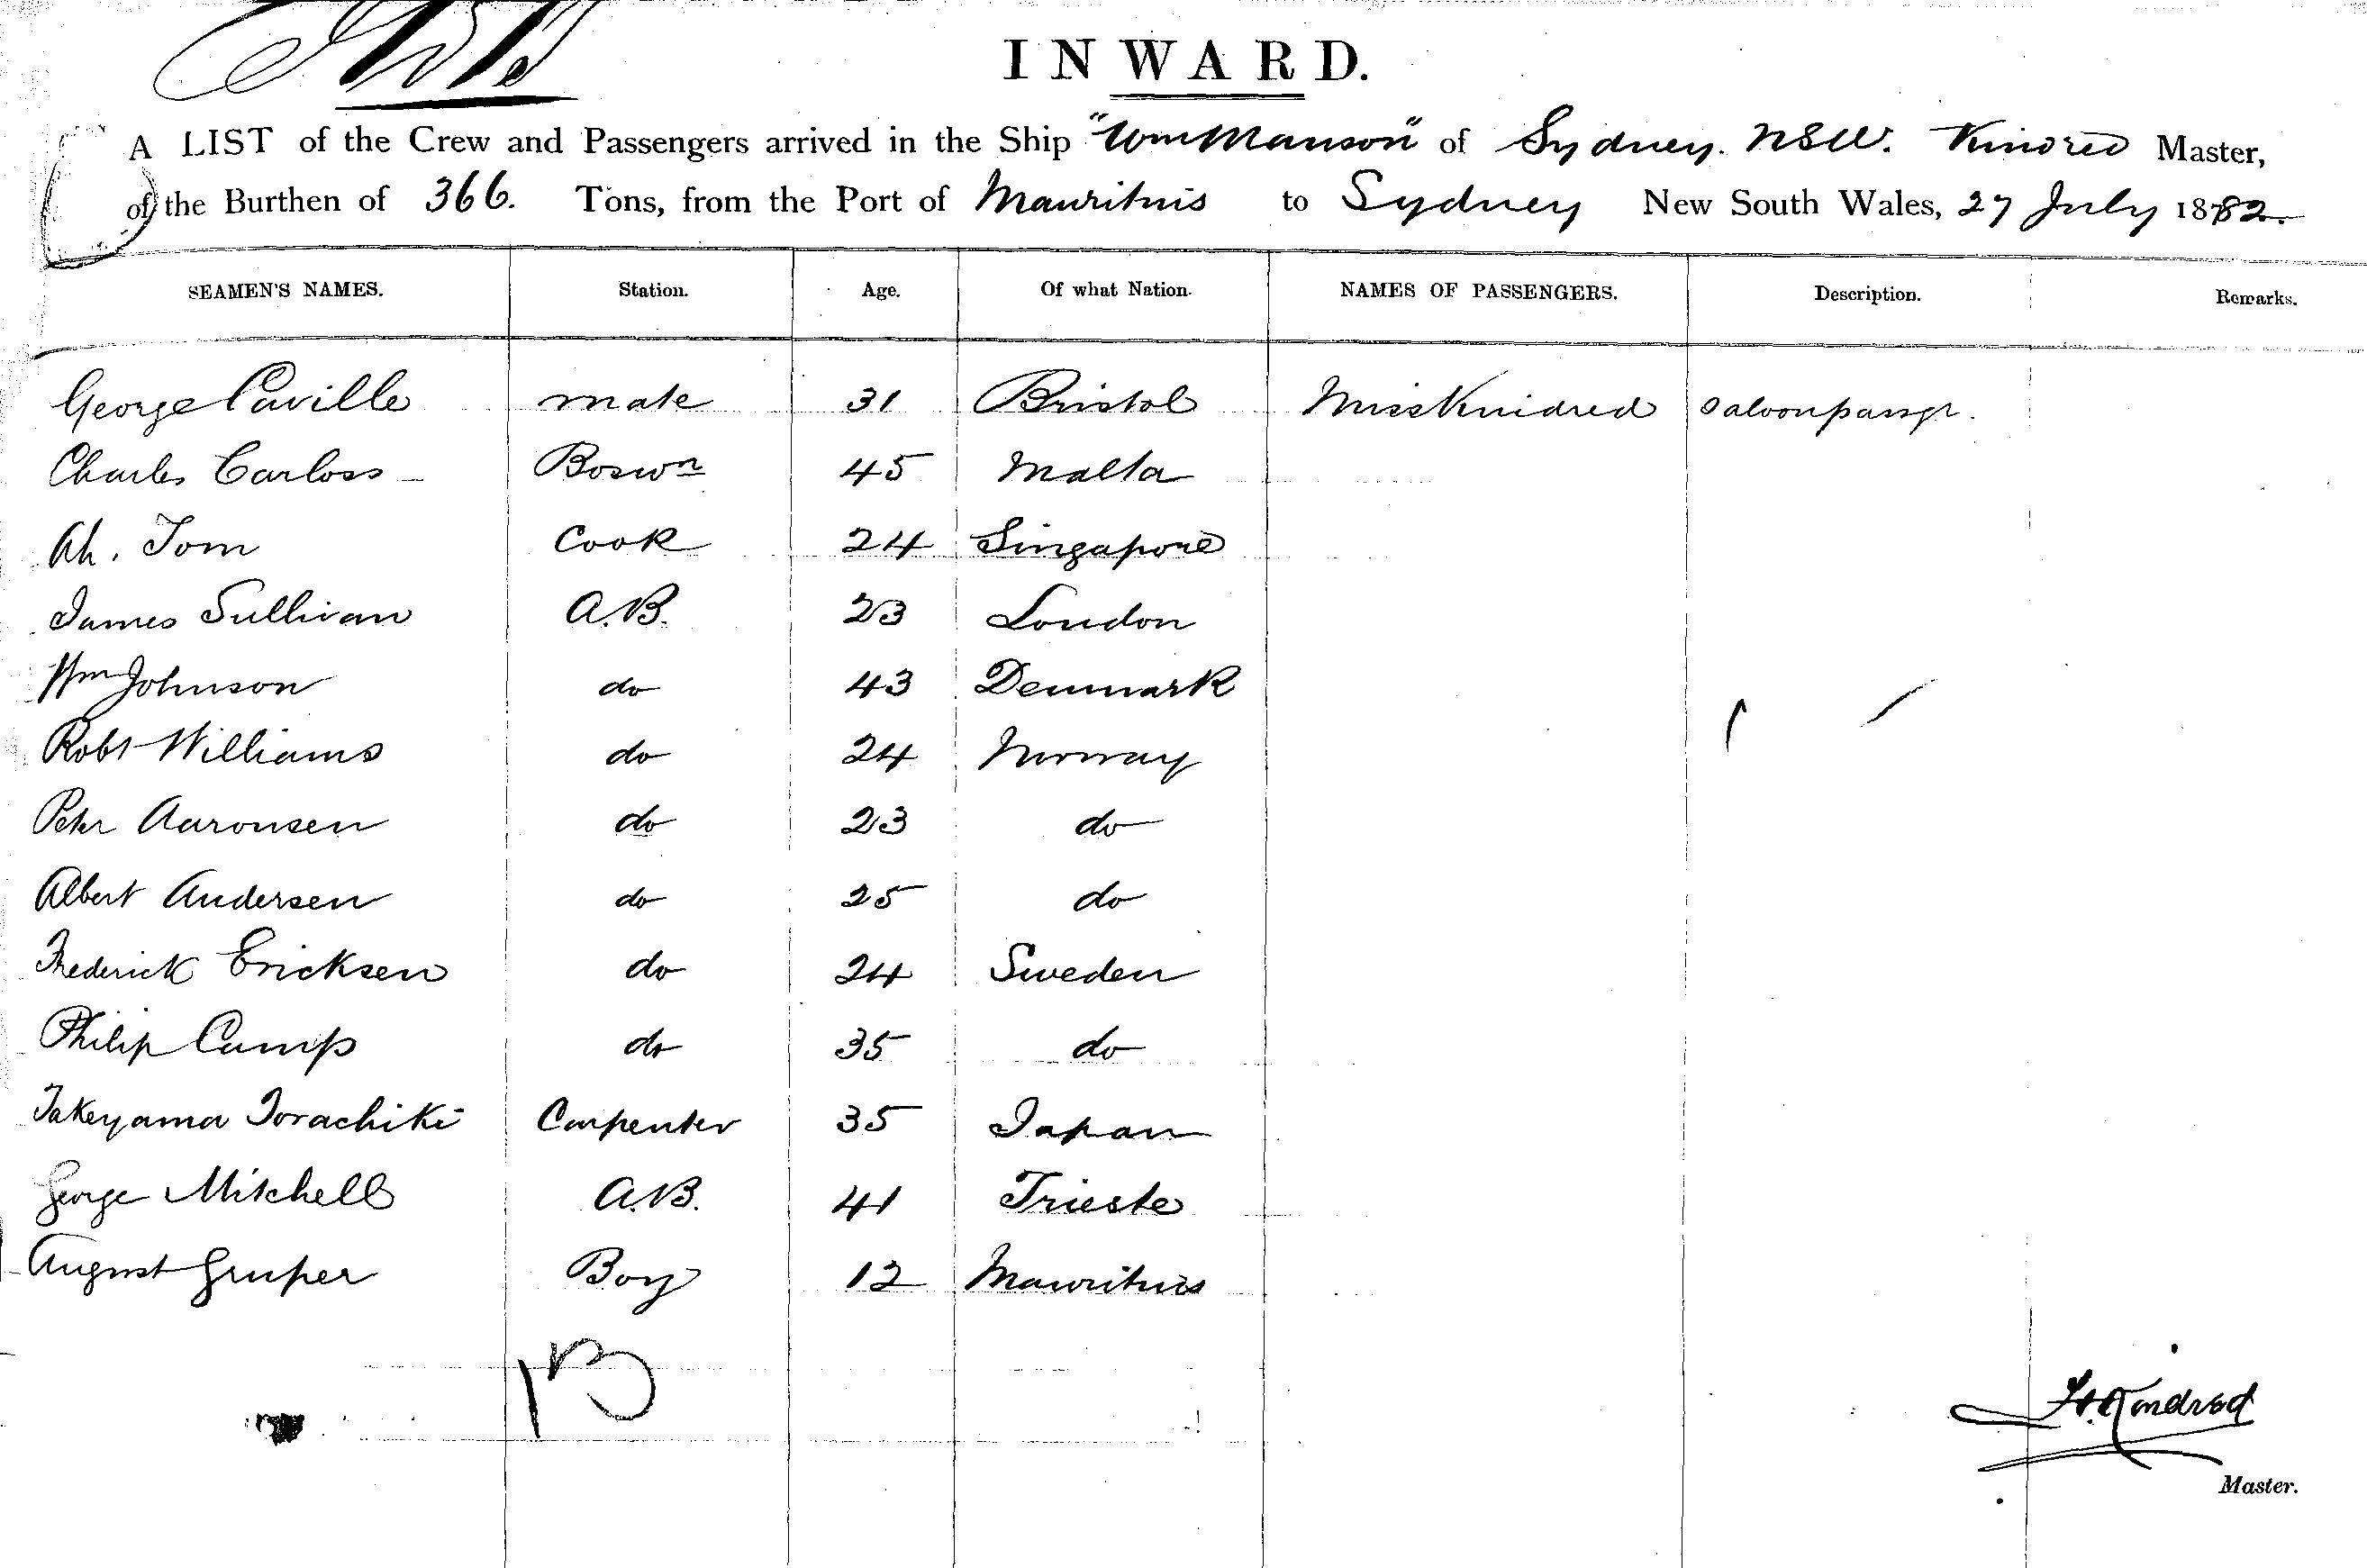 INWARD.
A LIST of the Crew and Passengers arrived in the Ship "Wm Manson" of Sydney. NSW. Kindred Master,
of the Burthen of 366. Tons, from the Port of Mauritius to Sydney New South Wales, 27 July 1882.
SEAMEN'S NAMES. Station. Age. Of what Nation. NAMES OF PASSENGERS. Description. Remarks.
George Caville mate 31 Bristol Miss Kindred Saloon passgr.
Charles Carloss Boswn 45 Malta
Ah. Tom Cook 24 Singapore
James Sullivan A.B. 23 London
Wm Johnson do 43 Denmark
Robt Williams do 24 Norway
Peter Aaronsen do 23 do
Albert Andersen do 25 do
Frederick Ericksen do 24 Sweden
Philip Camp do 35 do
Takeyama Torachiki Carpenter 35 Japan
George Mitchell A.B. 41 Trieste
August Gruper Boy 12 Mauritius
13
Kindred
Master.